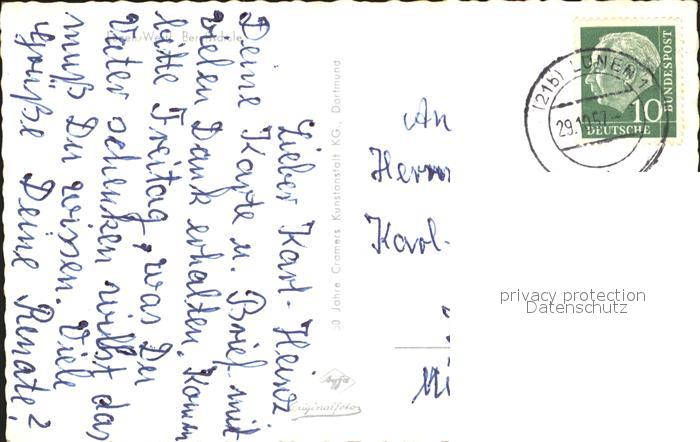 Lieber Karl-Heinz
Deine Karte u. Brief mit
vielen Dank erhalten. Komm
bitte Freitag, was Du
Vater schenken willst das
mußt Du wissen. Viele
Grüße Deine Renate!
Lünen-Westf. Berufsschule
50 Jahre Cramers Kunstanstalt KG., Dortmund
Agfa
Originalfoto
An
Herrn
Karl-
(21b) LÜNEN 1
29.10.57
10
DEUTSCHE
BUNDESPOST
privacy protection
Datenschutz